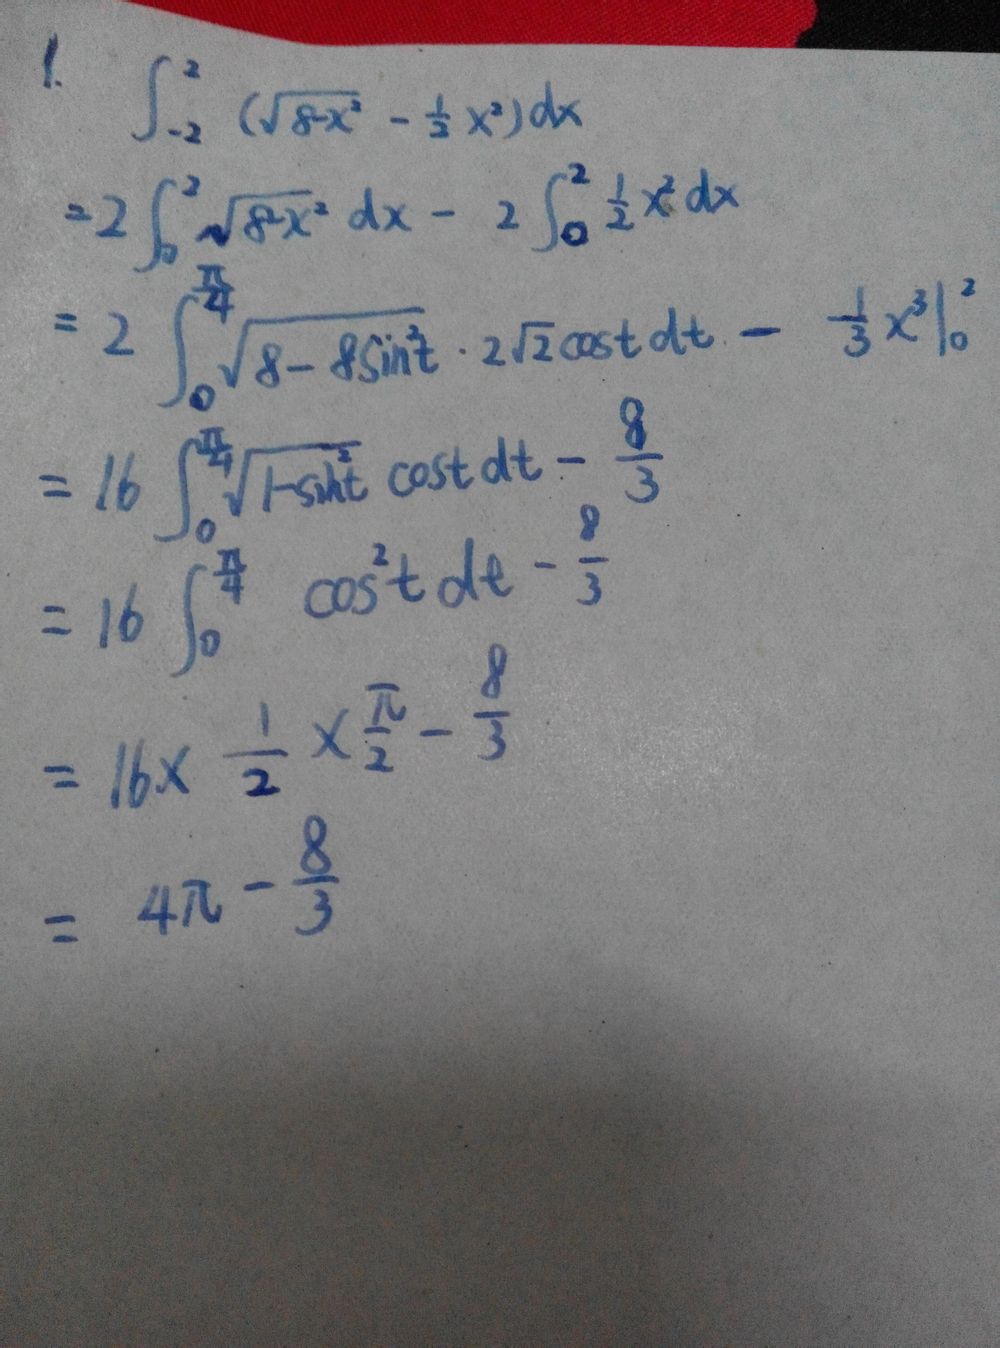 1. ∫_{-2}^{2} (√(8-x²) - 1/2 x²) dx
= 2 ∫_0^2 √(8-x²) dx - 2 ∫_0^2 1/2 x² dx
= 2 ∫_0^{π/4} √(8-8sin²t) · 2√2 cost dt - 1/3 x³ |_0^2
= 16 ∫_0^{π/4} √(1-sin²t) cost dt - 8/3
= 16 ∫_0^{π/4} cos²t dt - 8/3
= 16 × 1/2 × π/2 - 8/3
= 4π - 8/3